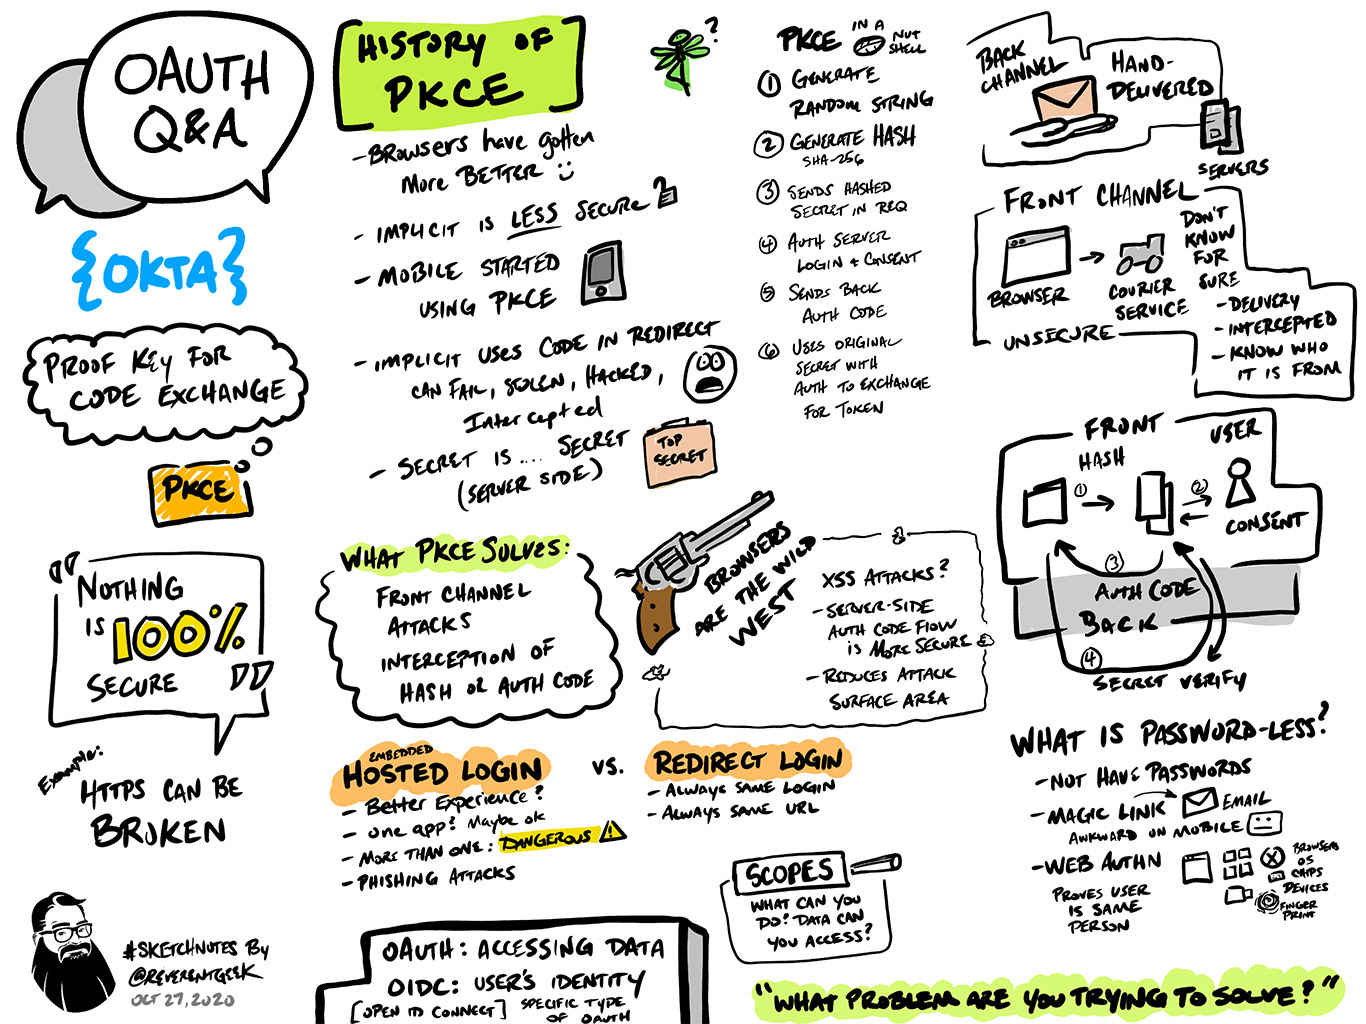 OAUTH
Q&A
{OKTA}
PROOF KEY FOR
CODE EXCHANGE
PKCE
"NOTHING
IS 100%
SECURE"
Example:
HTTPS CAN BE
BROKEN
#SKETCHNOTES By
@REVERENTGEEK
OCT 27, 2020
HISTORY OF
PKCE
?
- BROWSERS have gotten
More BETTER
- IMPLICIT IS LESS SECURE?
- MOBILE STARTED
USING PKCE
- IMPLICIT USES CODE IN REDIRECT
CAN FAIL, STOLEN, HACKED,
Intercepted
- SECRET IS... SECRET
(SERVER SIDE)
TOP
SECRET
WHAT PKCE SOLVES:
FRONT CHANNEL
ATTACKS
INTERCEPTION OF
HASH OR AUTH CODE
BROWSERS
ARE THE WILD
WEST
XSS ATTACKS?
- SERVER-SIDE
AUTH CODE FLOW
IS MORE SECURE
- REDUCES ATTACK
SURFACE AREA
EMBEDDED
HOSTED LOGIN
- Better Experience?
- one app? Maybe ok
- MORE THAN ONE: DANGEROUS !
- PHISHING ATTACKS
VS.
REDIRECT LOGIN
- ALWAYS SAME LOGIN
- ALWAYS SAME URL
SCOPES
WHAT CAN YOU
DO? DATA CAN
YOU ACCESS?
OAUTH: ACCESSING DATA
OIDC: USER'S IDENTITY
[OPEN ID CONNECT] SPECIFIC TYPE
OF OAUTH
PKCE IN A NUT
SHELL
1 GENERATE
RANDOM STRING
2 GENERATE HASH
SHA-256
3 SENDS HASHED
SECRET IN REQ
4 AUTH SERVER
LOGIN + CONSENT
5 SENDS BACK
AUTH CODE
6 USES ORIGINAL
SECRET WITH
AUTH TO EXCHANGE
FOR TOKEN
BACK
CHANNEL
HAND-
DELIVERED
SERVERS
FRONT CHANNEL
BROWSER
COURIER
SERVICE
UNSECURE
DON'T
KNOW
FOR
SURE
- DELIVERY
- INTERCEPTED
- KNOW WHO
IT IS FROM
FRONT
HASH
USER
1
2
CONSENT
3
AUTH CODE
BACK
4
SECRET VERIFY
WHAT IS PASSWORD-LESS?
- NOT HAVE PASSWORDS
- MAGIC LINK EMAIL
AWKWARD ON MOBILE
- WEB AUTHN
PROVES USER
IS SAME
PERSON
BROWSERS
OS
CHIPS
DEVICES
FINGER
PRINT
"WHAT PROBLEM ARE YOU TRYING TO SOLVE?"